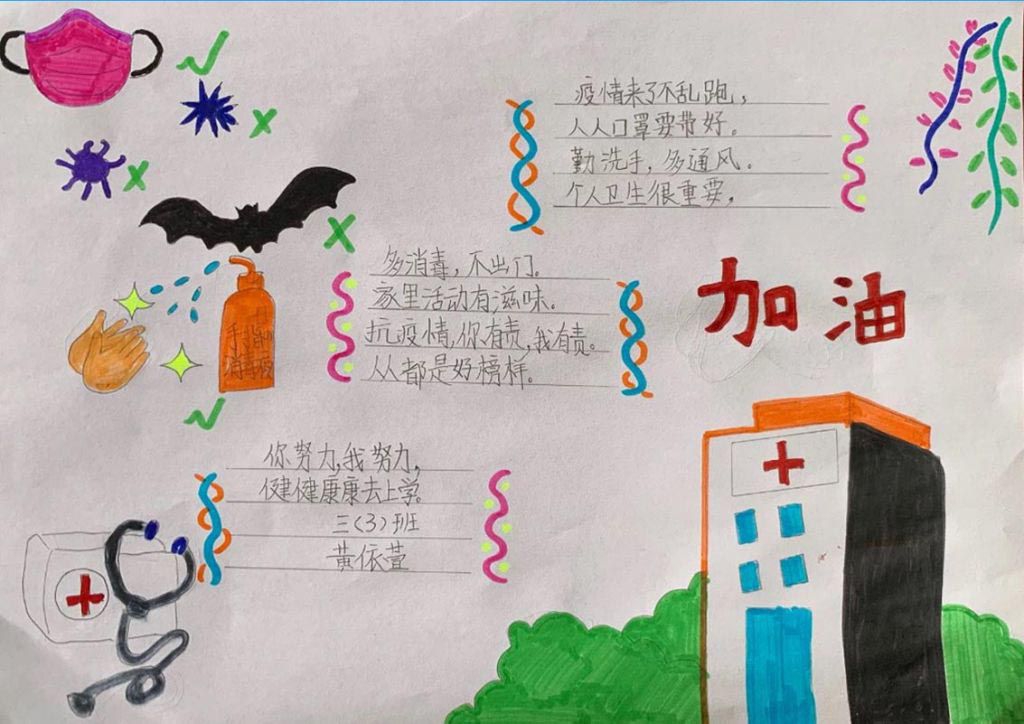 疫情来了不乱跑，
人人口罩要带好。
勤洗手，多通风。
个人卫生很重要，
加油
多消毒，不出门。
家里活动有滋味。
抗疫情，你有责，我有责。
从从都是好榜样。
消毒液
你努力，我努力，
健健康康去上学。
三（3）班
黄依萱